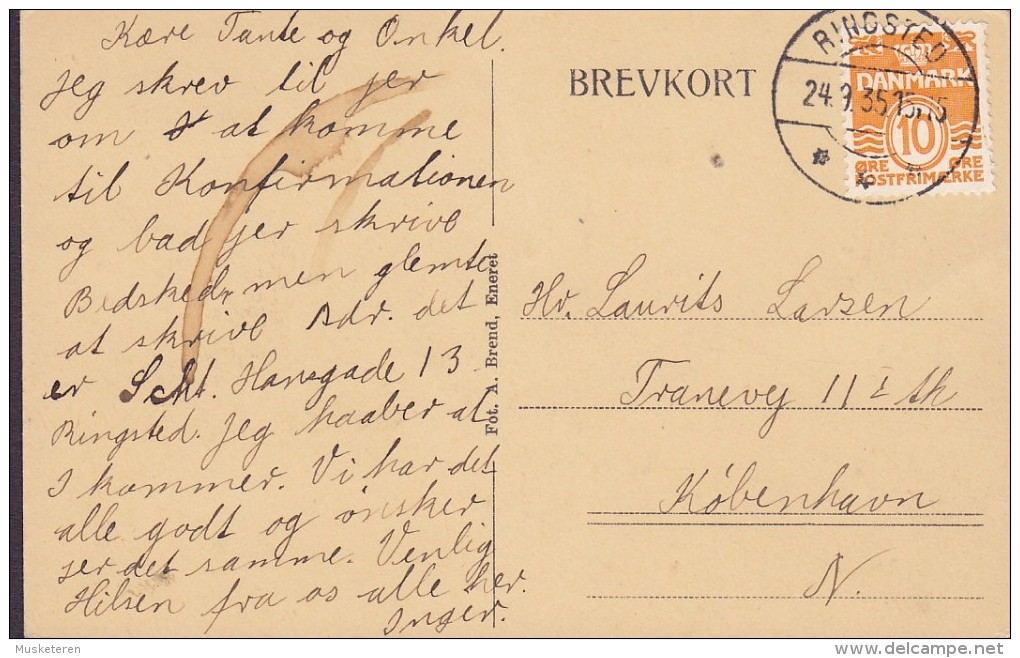 Kære Tante og Onkel.
Jeg skrev til jer
om at komme
til Konfirmationen
og bad jer skrive
Bedsked, men glemte
at skrive Adr. det
er Scht. Hansgade 13
Ringsted. Jeg haaber at
I kommer. Vi har det
alle godt og ønsker
jer det samme. Venlig
Hilsen fra os alle her.
Inger.
Fot. A. Brend, Eneret
BREVKORT
RINGSTED
24.9.35 15.15
DANMARK
10
ØRE ØRE
POSTFRIMÆRKE
Hr. Laurits Larsen
Tranevej 11 I th
København
N.
Musketeren
delcampe.net